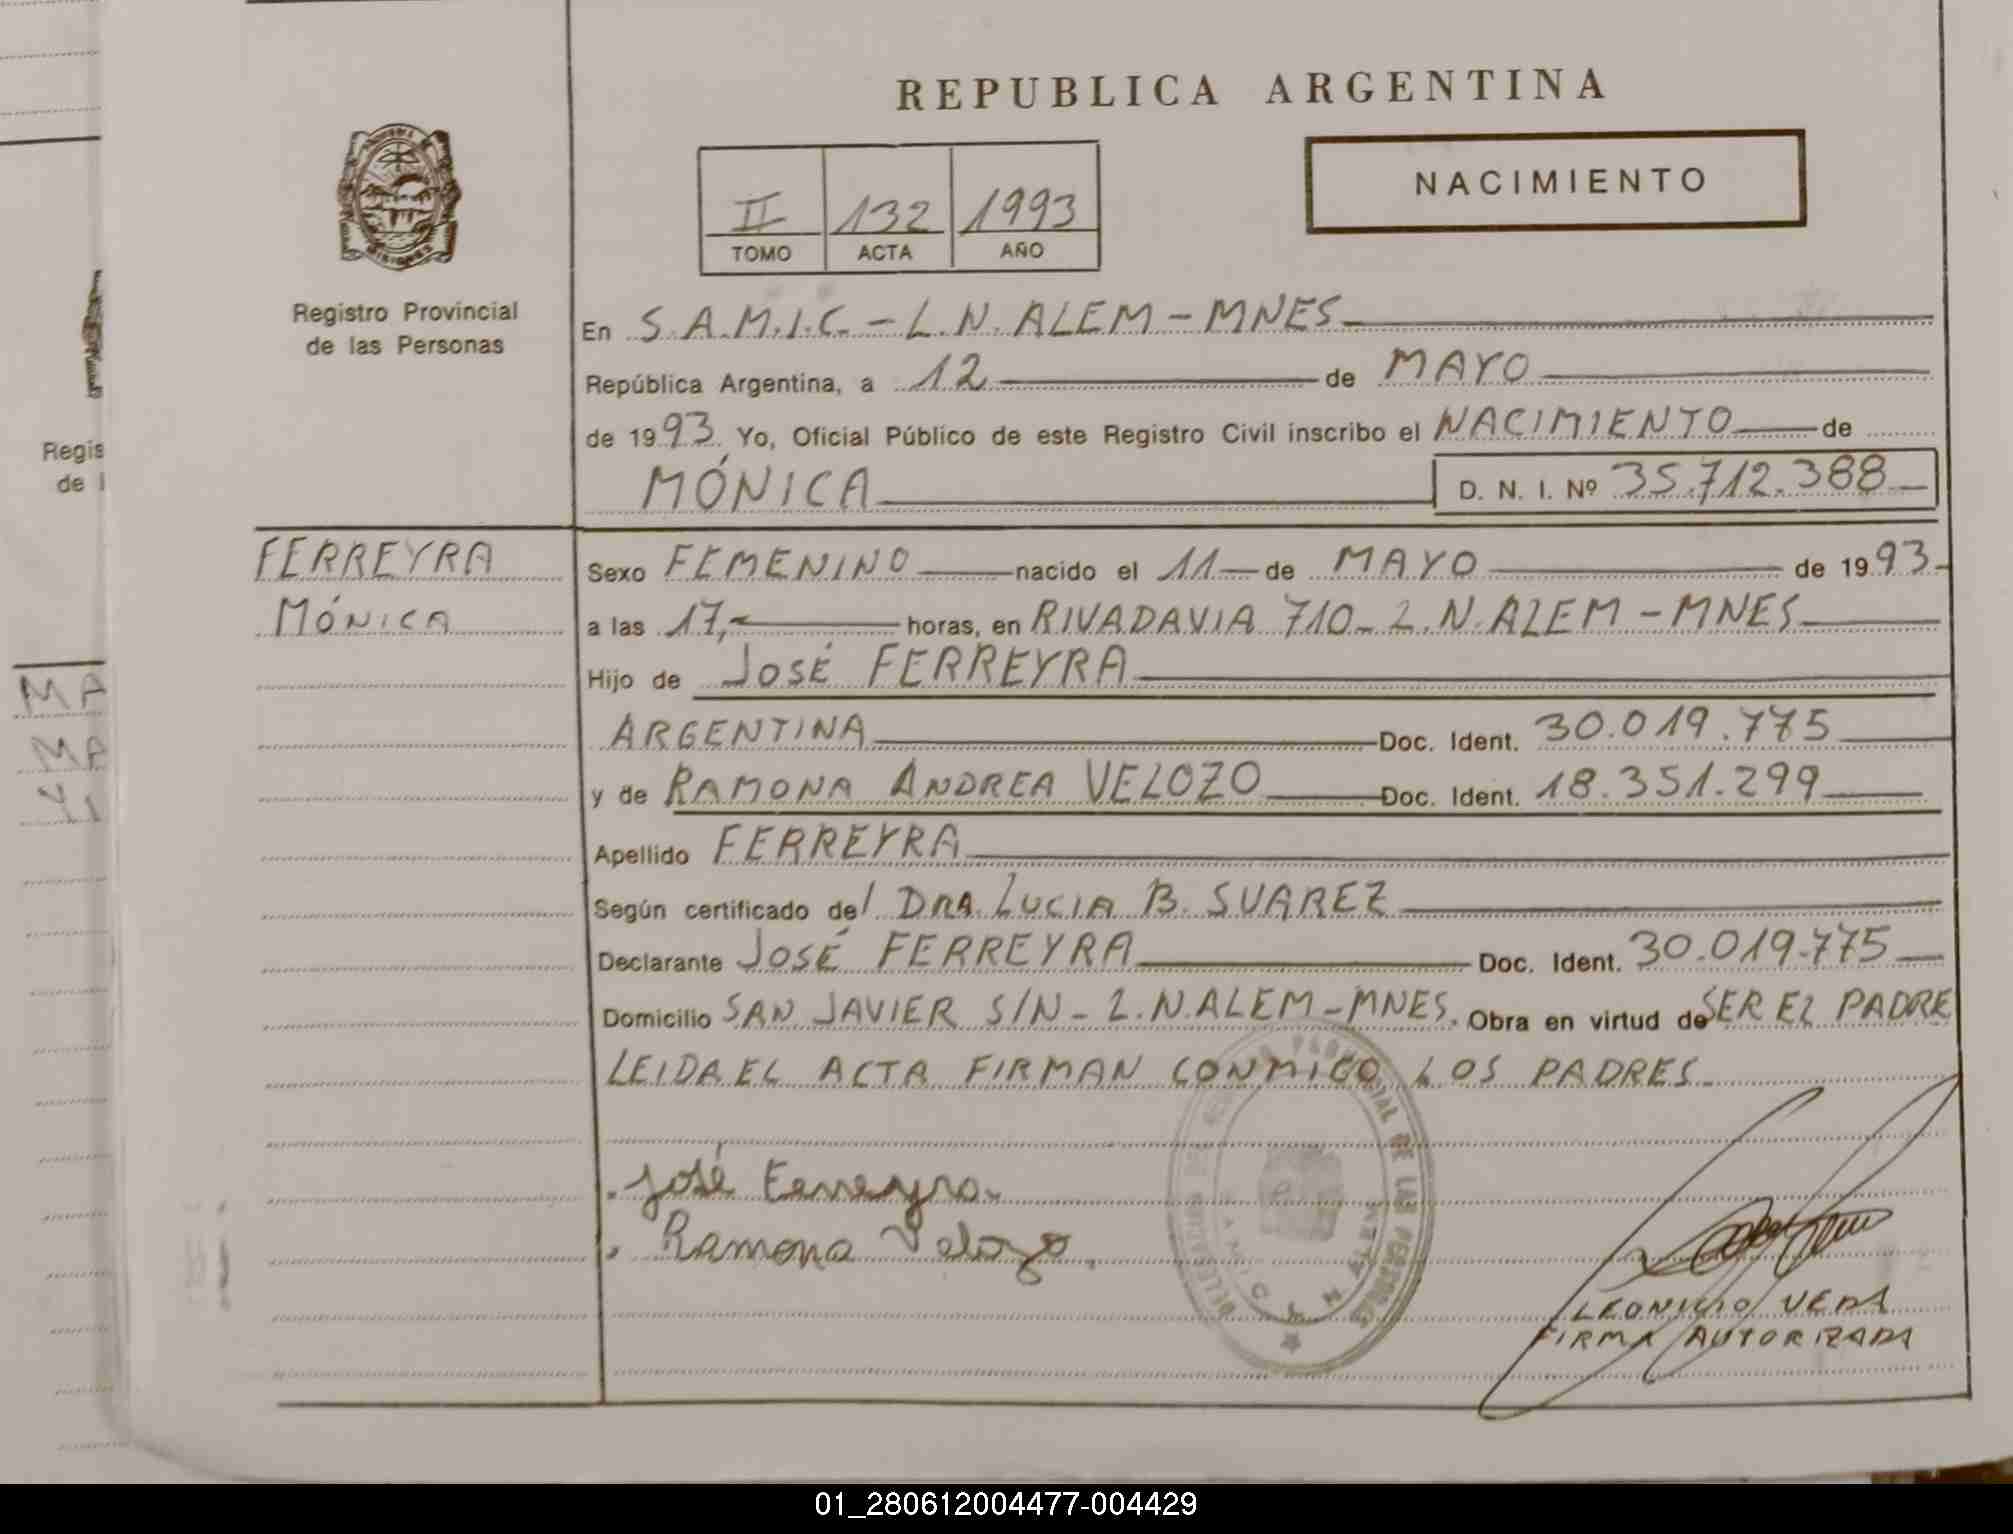 REPUBLICA ARGENTINA
NACIMIENTO
II 132 1993
TOMO ACTA AÑO
MISIONES
Registro Provincial
de las Personas
En S.A.M.I.C. - L.N. ALEM - MNES
República Argentina, a 12 de MAYO
de 1993. Yo, Oficial Público de este Registro Civil inscribo el NACIMIENTO de
MÓNICA D. N. I. Nº 35.712.388
FERREYRA
MÓNICA
Sexo FEMENINO nacido el 11 de MAYO de 1993
a las 17,- horas, en RIVADAVIA 710 - L.N. ALEM - MNES
Hijo de JOSÉ FERREYRA
ARGENTINA Doc. Ident. 30.019.775
y de RAMONA ANDREA VELOZO Doc. Ident. 18.351.299
Apellido FERREYRA
Según certificado de/ DRA. LUCIA B. SUAREZ
Declarante JOSÉ FERREYRA Doc. Ident. 30.019.775
Domicilio SAN JAVIER S/N - L.N. ALEM - MNES. Obra en virtud de SER EL PADRE
LEIDA EL ACTA FIRMAN CONMIGO LOS PADRES.
José Ferreyra
Ramona Velozo
PROVINCIAL DE LAS PERSONAS
VEDA
FIRMA AUTORIZADA
Regis
de l
MA
MA
01_280612004477-004429